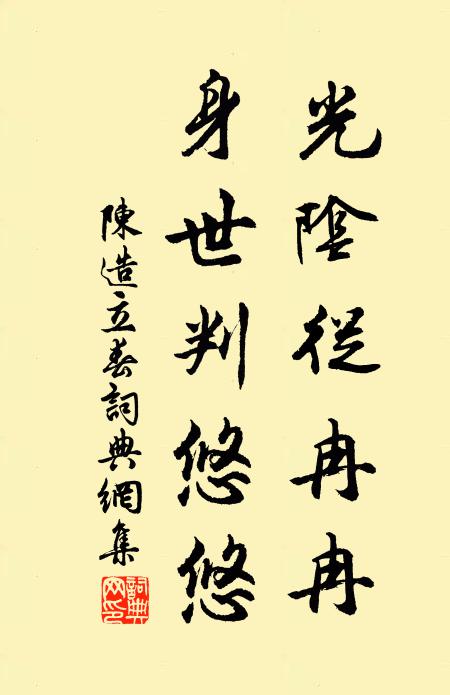 光陰從冉冉
身世判悠悠
陳造立春詞典網集
詞典網印